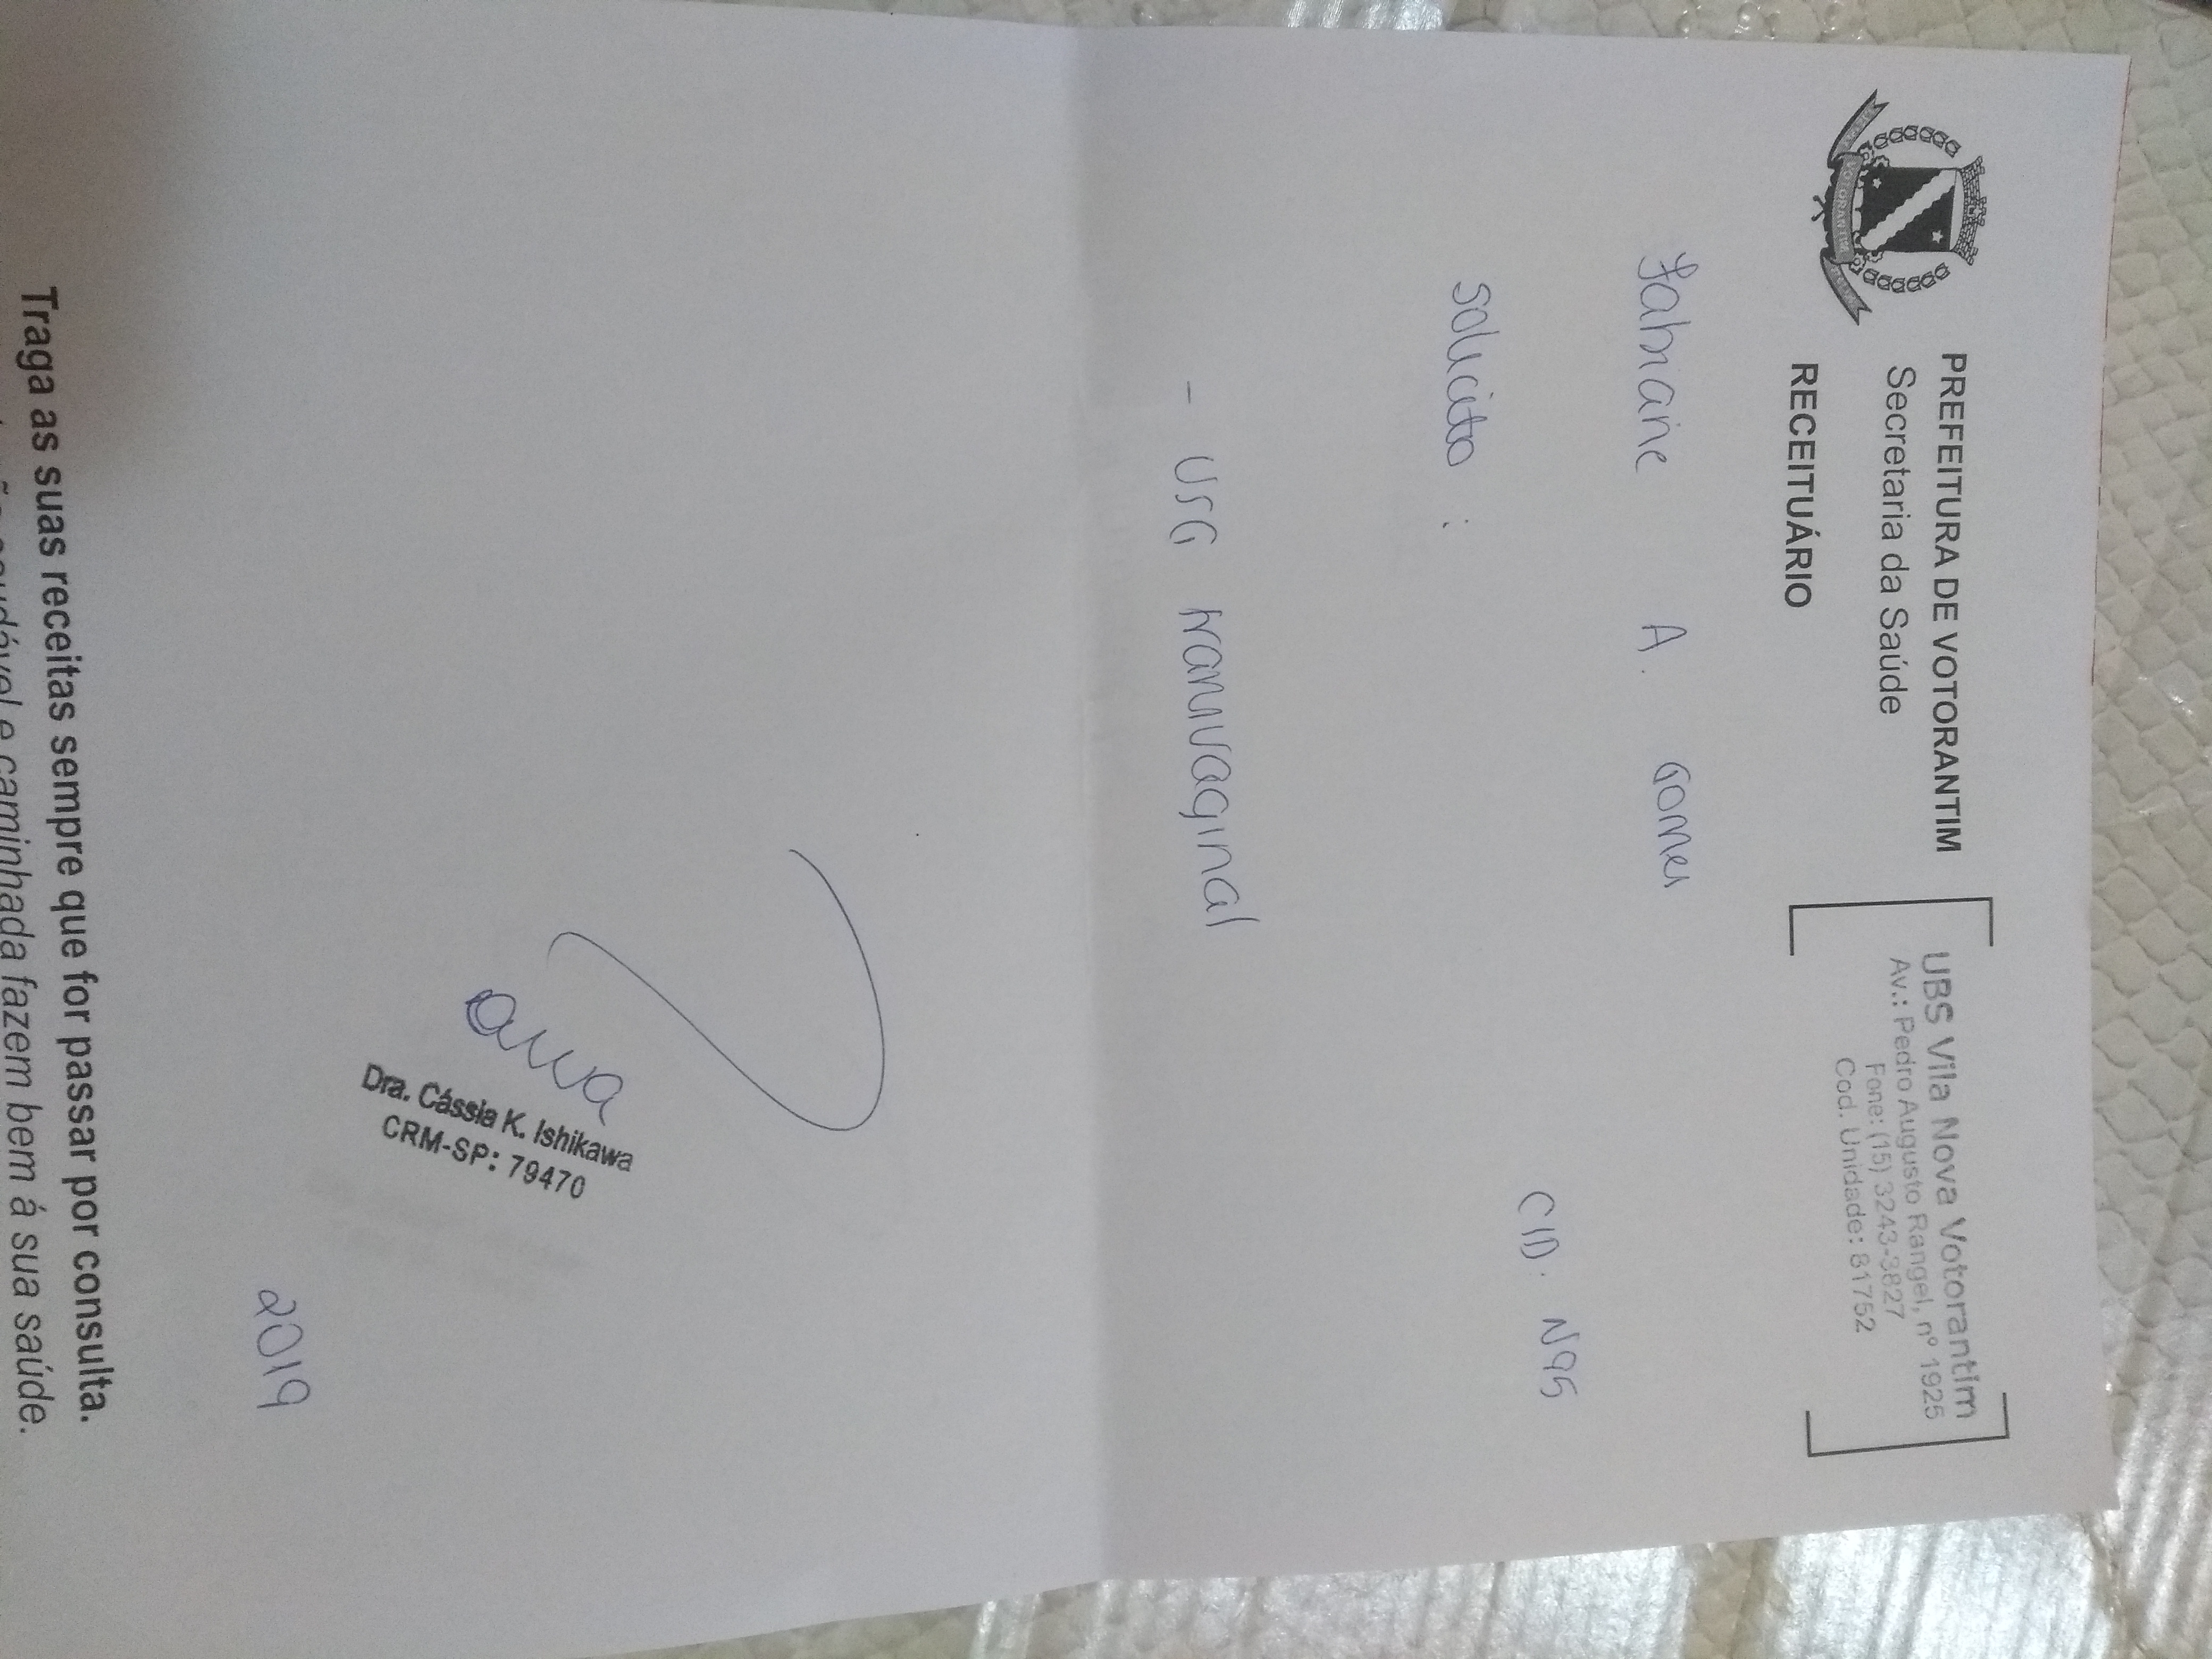 PREFEITURA DE VOTORANTIM
Secretaria da Saúde
RECEITUÁRIO
VOTORANTIM
UBS Vila Nova Votorantim
Av.: Pedro Augusto Rangel, nº 1925
Fone: (15) 3243-3827
Cod. Unidade: 81752
Fabiane A. Gomes
CID. N95
Solicito :
- USG transvaginal
Dra. Cássia K. Ishikawa
CRM-SP: 79470
2019
Traga as suas receitas sempre que for passar por consulta.
saudável e caminhada fazem bem á sua saúde.